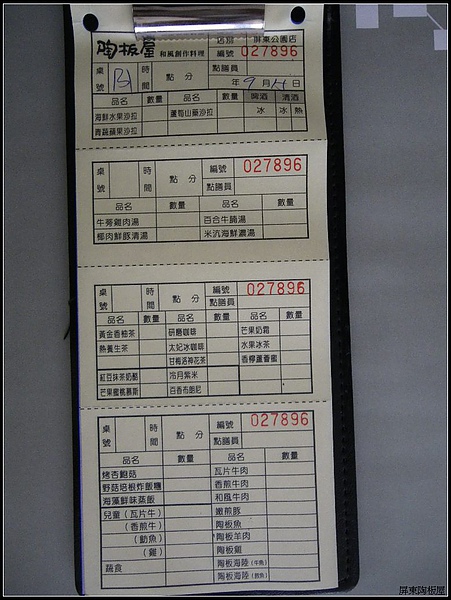 陶板屋 和風創作料理 店別 屏東公園店
編號 027896
桌號 時間 點 分 點膳員 年 9 月 日
品名 數量 品名 數量 啤酒 清酒
海鮮水果沙拉 蘆筍山藥沙拉 冰 冰 熱
青蔬蘋果沙拉
桌號 時間 點 分 編號 027896
點膳員
品名 數量 品名 數量
牛蒡雞肉湯 百合牛蹄湯
椰肉鮮豚清湯 米沉海鮮濃湯
桌號 時間 點 分 編號 027896
點膳員
品名 數量 品名 數量 品名 數量
黃金香柚茶 研磨咖啡 芒果奶霜
熱養生茶 太妃冰咖啡 水果冰茶
甘梅洛神花茶 香檸蘆薈蜜
紅豆抹茶奶酪 冷月紫米
芒果蜜桃慕斯 百香布朗尼
桌號 時間 點 分 編號 027896
點膳員
品名 數量 品名 數量
烤杏鮑菇 瓦片牛肉
野菇培根炸飯糰 香煎牛肉
海藻鮮味蒸飯 和風牛肉
兒童（瓦片牛） 嫩煎豚
（香煎牛） 陶板魚
（魴魚） 陶板羊肉
（雞） 陶板雞
蔬食 陶板海陸（牛魚）
陶板海陸（豚魚）
屏東陶板屋